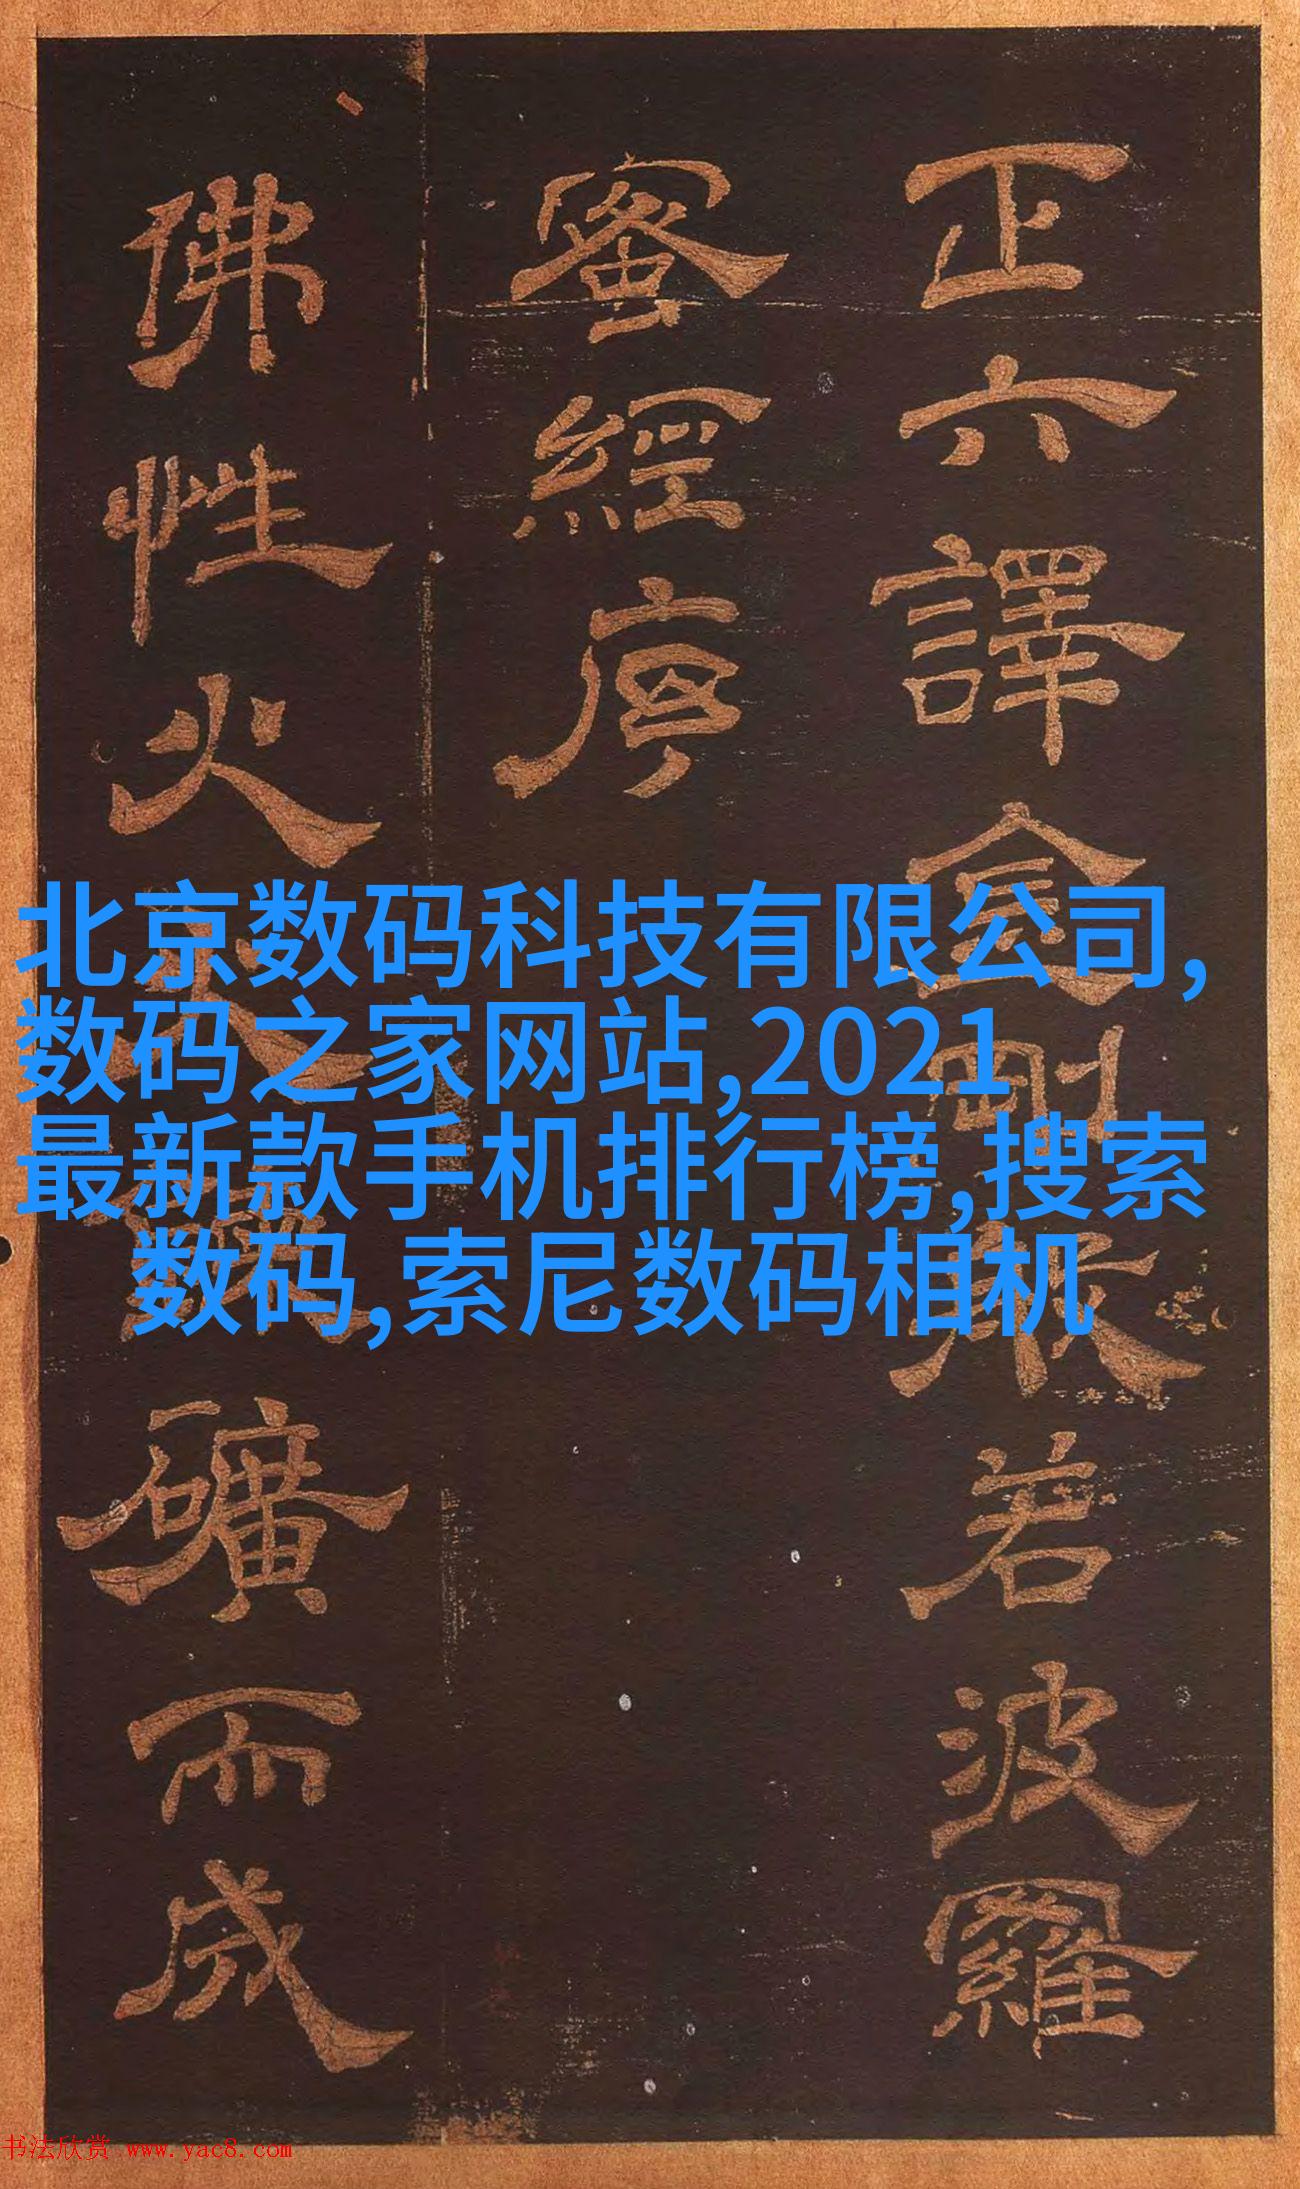 正六譯金剛般若波羅
蜜經序
佛性火
礦而成
北京数码科技有限公司,
数码之家网站,2021
最新款手机排行榜,搜索
数码,索尼数码相机
书法欣赏 www.yac8.com